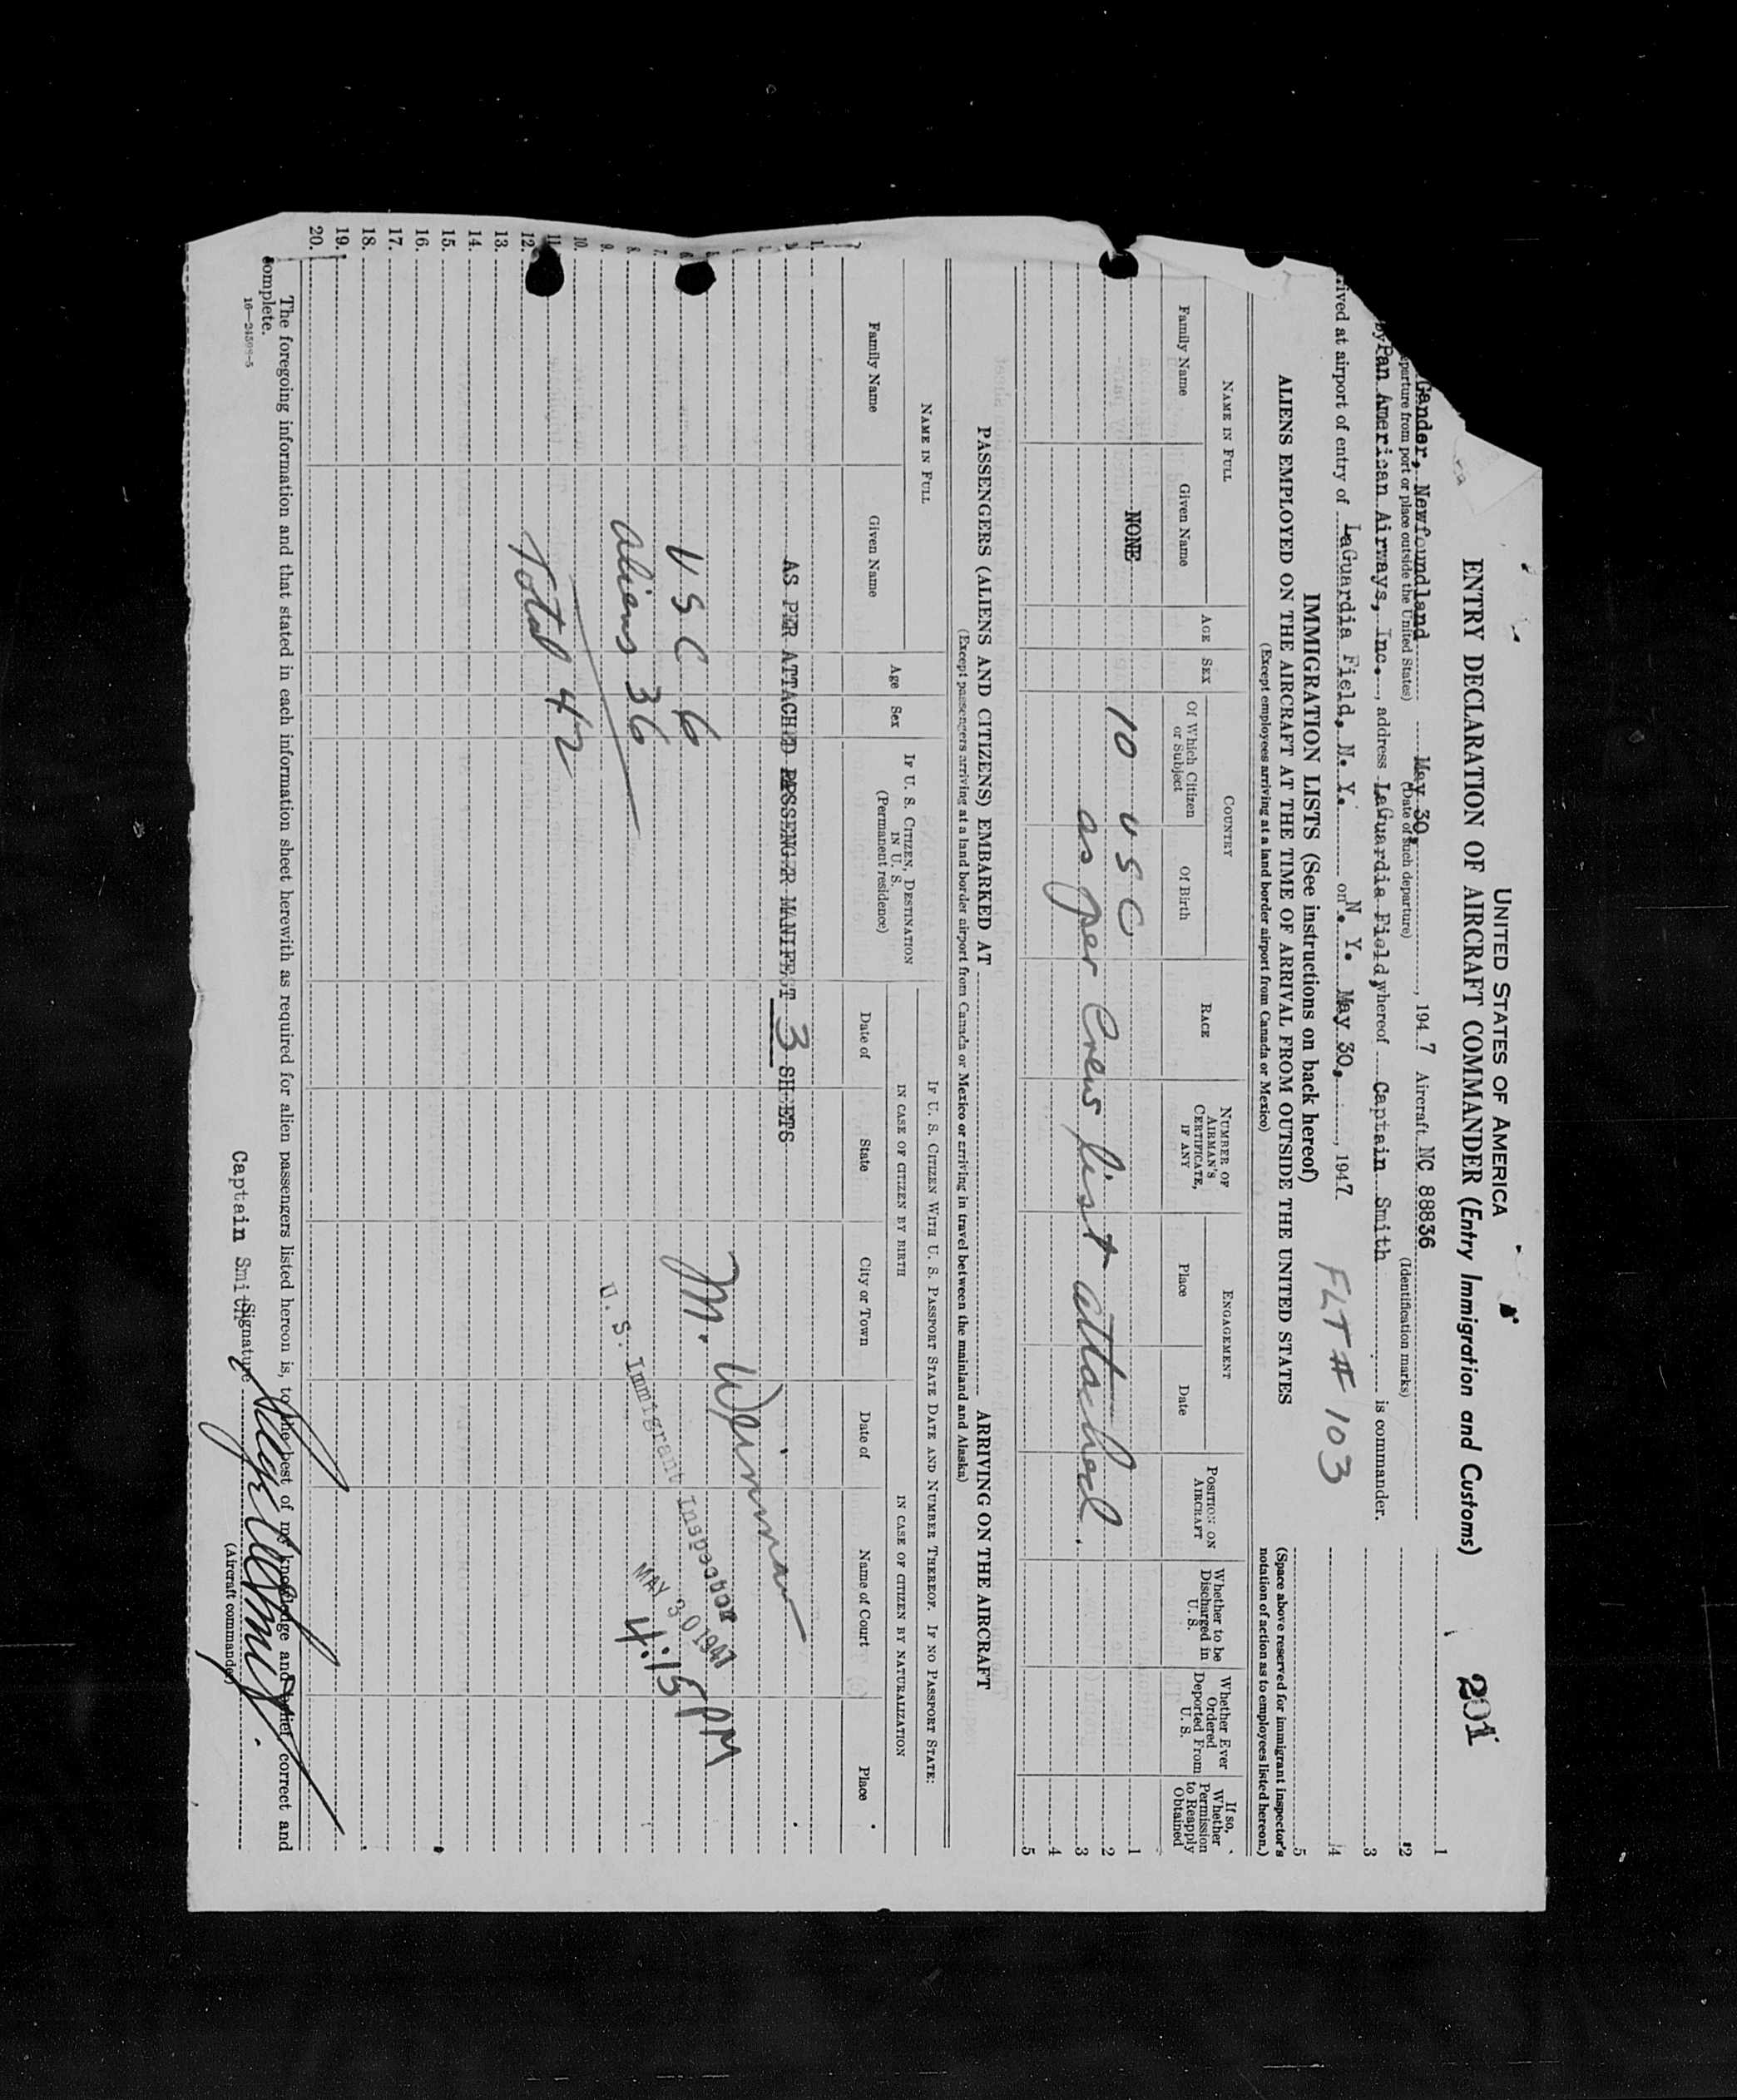 UNITED STATES OF AMERICA
ENTRY DECLARATION OF AIRCRAFT COMMANDER (Entry Immigration and Customs)
201
Gander, Newfoundland May 30, 1947 Aircraft NC 88836
eparture from port or place outside the United States) (Date of such departure) (Identification marks)
by Pan American Airways, Inc., address LaGuardia Field, whereof Captain Smith is commander.
rived at airport of entry of LaGuardia Field, N. Y. on N. Y. May 30, 1947.
FLT # 103
1
2
3
4
5
IMMIGRATION LISTS (See instructions on back hereof)
(Space above reserved for immigrant inspector's
notation of action as to employees listed hereon.)
ALIENS EMPLOYED ON THE AIRCRAFT AT THE TIME OF ARRIVAL FROM OUTSIDE THE UNITED STATES
(Except employees arriving at a land border airport from Canada or Mexico)
NAME IN FULL
Family Name
Given Name
AGE
SEX
COUNTRY
Of Which Citizen or Subject
Of Birth
RACE
NUMBER OF AIRMAN'S CERTIFICATE, IF ANY
ENGAGEMENT
Place
Date
POSITION ON AIRCRAFT
Whether to be Discharged in U. S.
Whether Ever Ordered Deported From U. S.
If so, Whether Permission to Reapply Obtained
NONE 10 U S C 1
2
as per Crew list attached. 3
4
5
PASSENGERS (ALIENS AND CITIZENS) EMBARKED AT ARRIVING ON THE AIRCRAFT
(Except passengers arriving at a land border airport from Canada or Mexico or arriving in travel between the mainland and Alaska)
NAME IN FULL
Family Name
Given Name
Age
Sex
IF U. S. CITIZEN, DESTINATION IN U. S.
(Permanent residence)
IF U. S. CITIZEN WITH U. S. PASSPORT STATE DATE AND NUMBER THEREOF. IF NO PASSPORT STATE:
IN CASE OF CITIZEN BY BIRTH
IN CASE OF CITIZEN BY NATURALIZATION
Date of
State
City or Town
Date of
Name of Court
Place
1.
AS PER ATTACHED PASSENGER MANIFEST 3 SHEETS
U S C 6
aliens 36
Total 42
M. Weinman
U. S. Immigrant Inspector
MAY 30 1947
4:15 PM
7.
8.
9.
10.
11.
12.
13.
14.
15.
16.
17.
18.
19.
20.
The foregoing information and that stated in each information sheet herewith as required for alien passengers listed hereon is, to the best of my knowledge and belief, correct and
complete.
Captain Smith Signature
(Aircraft commander)
16—24598-5